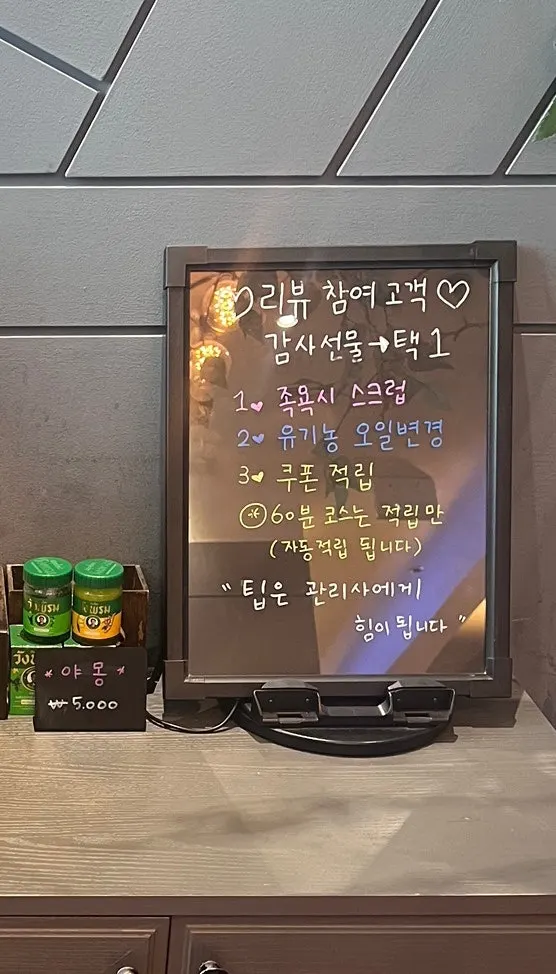 ♡리뷰 참여고객♡
감사선물→택1
1♥ 족욕시 스크럽
2♥ 유기농 오일변경
3♥ 쿠폰 적립
60분 코스는 적립만
(자동적립 됩니다)
"팁은 관리사에게
힘이 됩니다"
* 야몽 *
₩5.000